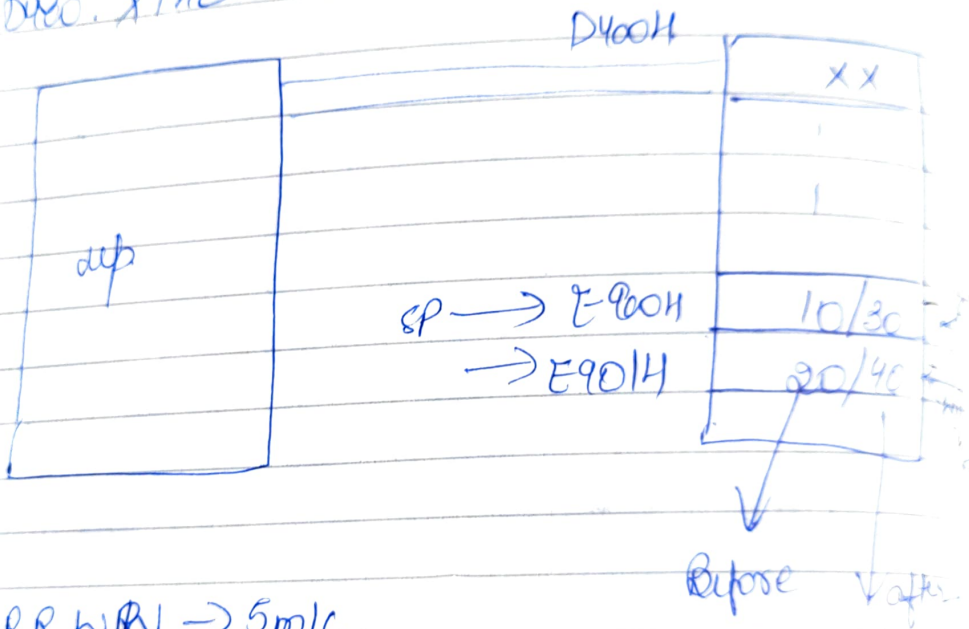 D400. XTHL
D400H
XX
μp
SP → E900H 10/30
→ E901H 20/40
Before after
→ 5m/c